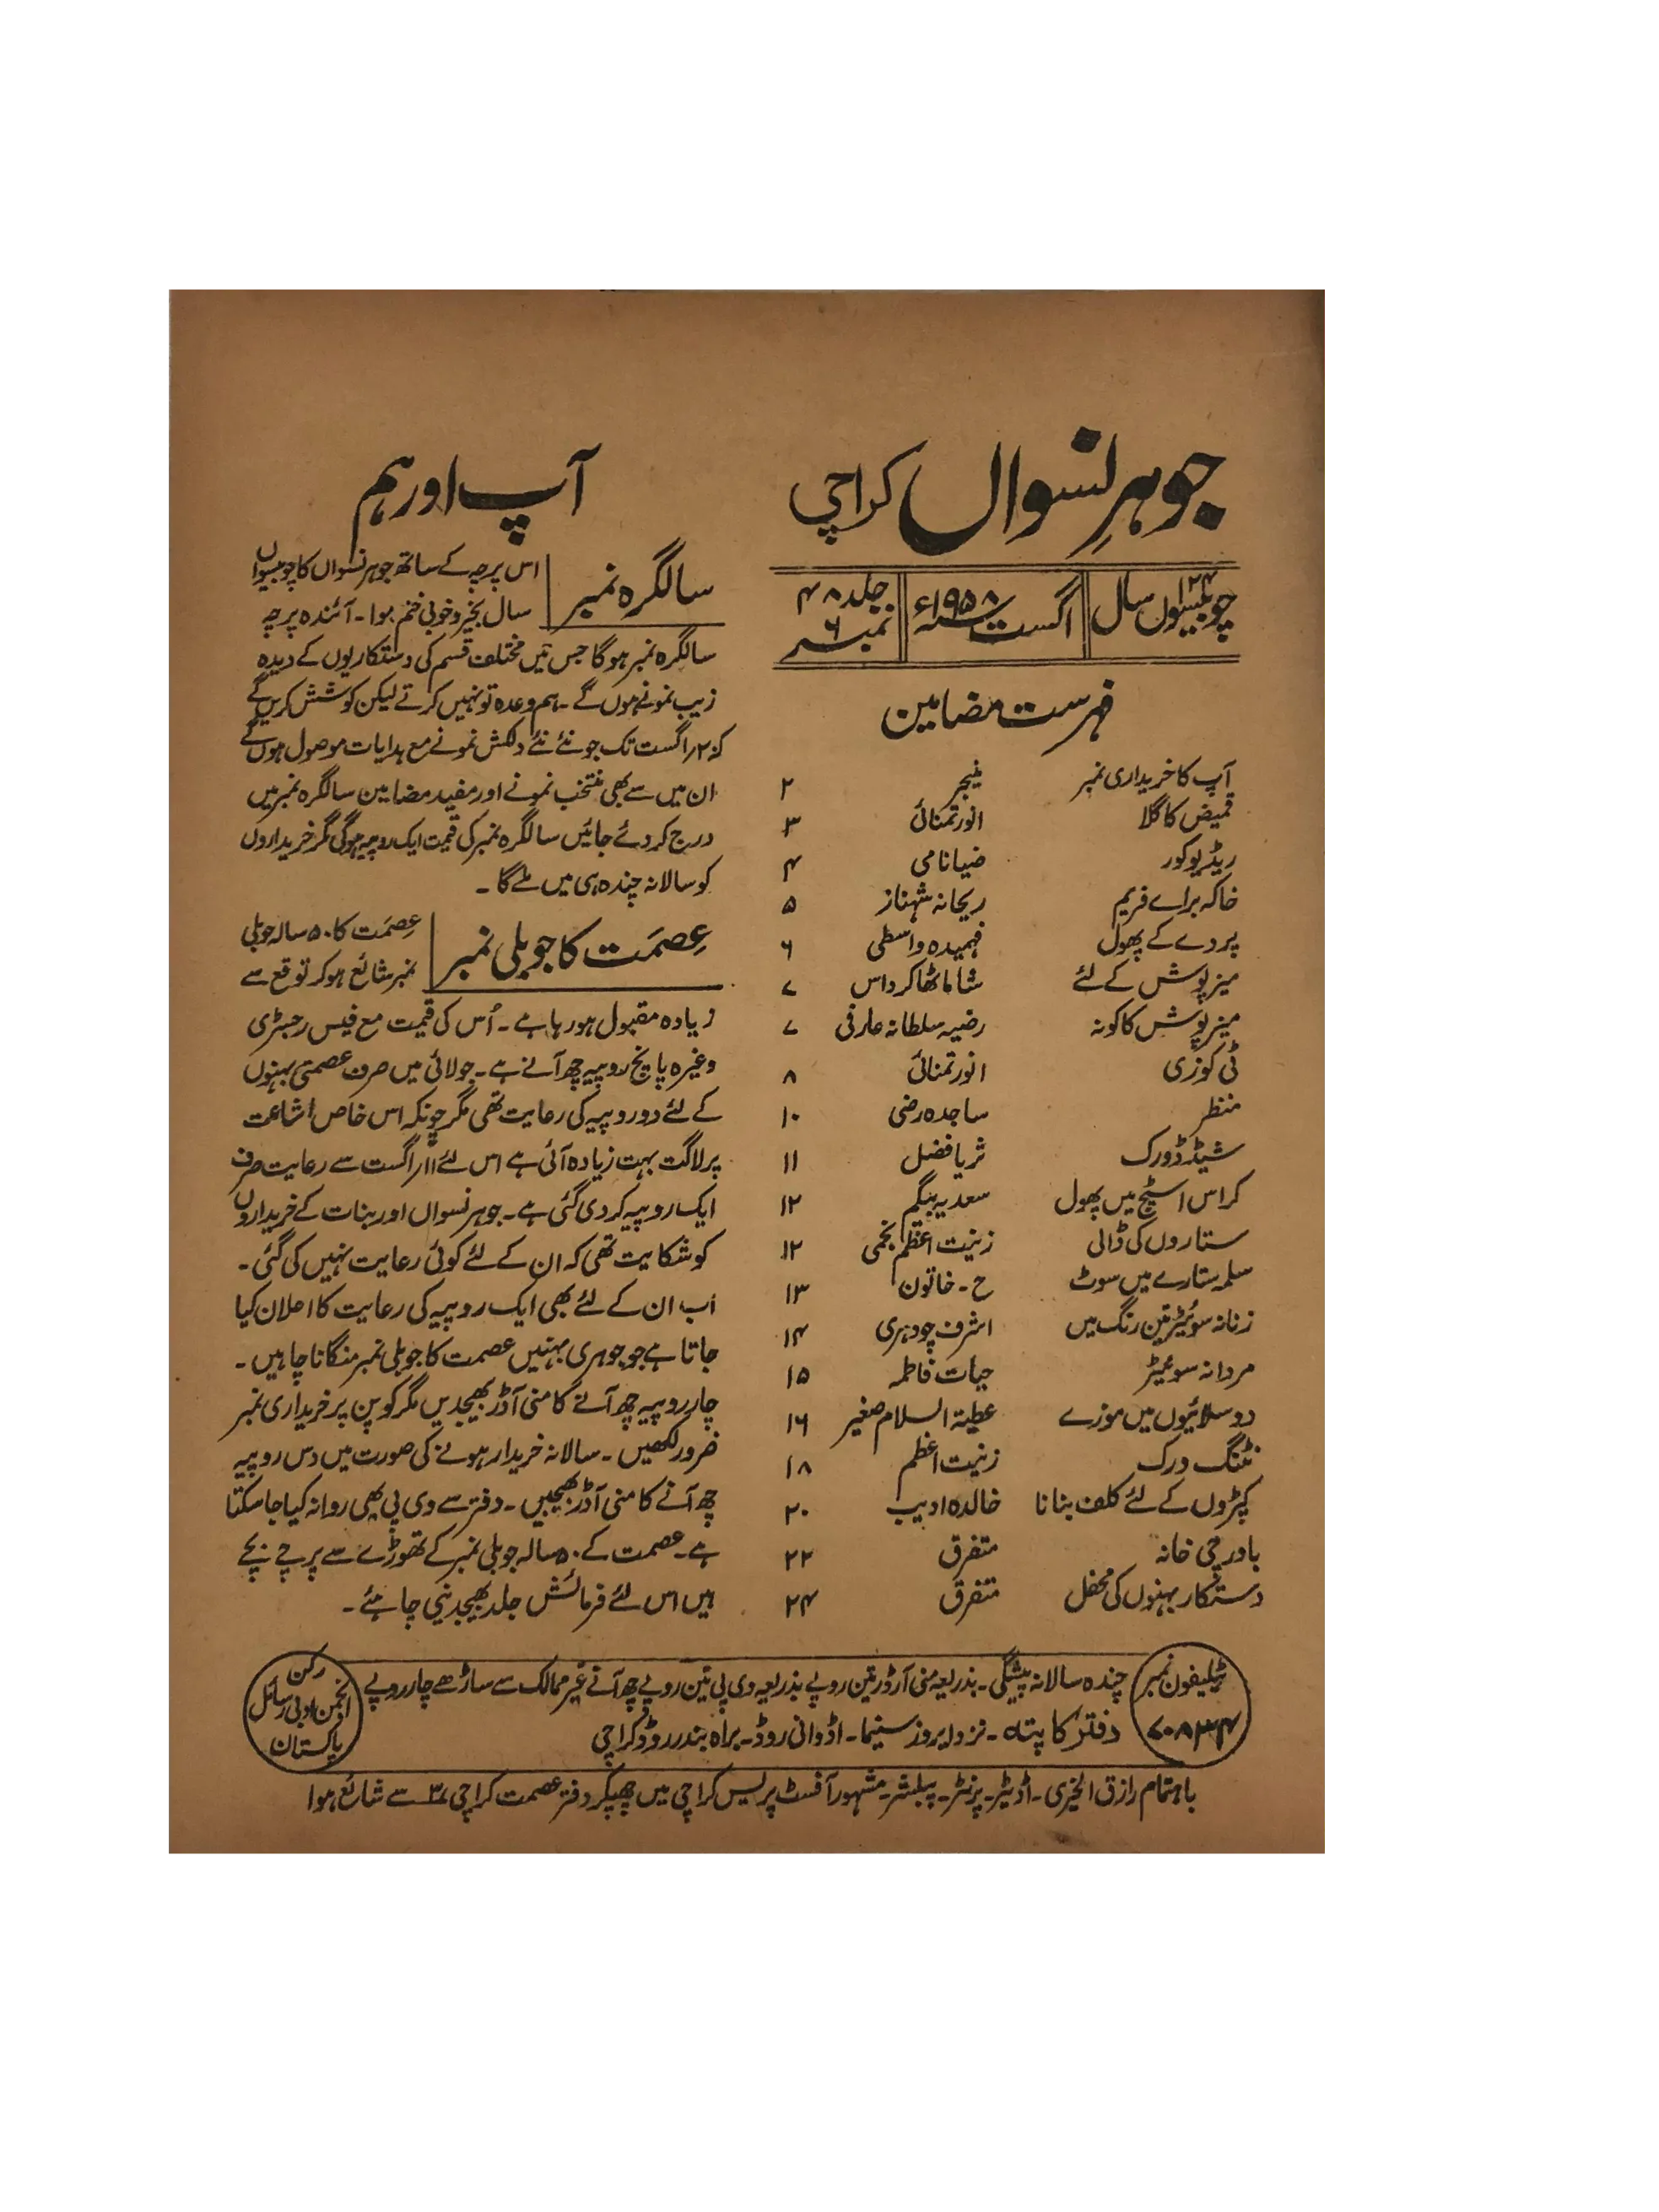 جوہرِ نسواں کراچی
چوبیسواں سال ۲۴
اگست ۱۹۵۸ء
جلد ۴۸
نمبر ۶
فہرست مضامین
آپ کا خریداری نمبر منیجر ۲
قمیض کا گلا انور تمنائی ۳
ریڈیو کور ضیا نامی ۴
خاکہ براے فریم ریحانہ شہناز ۵
پردے کے پھول فہمیدہ واسطی ۶
میز پوش کے لئے شاما ٹھاکر داس ۷
میز پوش کا کونہ رضیہ سلطانہ عارفی ۷
ٹی کوزی انور تمنائی ۸
منظر ساجدہ رضی ۱۰
شیڈڈ ورک ثریا فضل ۱۱
کراس اسٹچ میں پھول سعدیہ بیگم ۱۲
ستاروں کی ڈالی زینت اعظم نجمی ۱۲
سلمہ ستارے میں سوٹ ح۔ خاتون ۱۳
زنانہ سوئیٹر تین رنگ میں اشرف چودہری ۱۴
مردانہ سوئیٹر حیات فاطمہ ۱۵
دو سلائیوں میں موزے عطیۃ السلام صغیر ۱۶
نٹنگ ورک زینت اعظم ۱۸
کپڑوں کے لئے کلف بنانا خالدہ ادیب ۲۰
باورچی خانہ متفرق ۲۲
دستکار بہنوں کی محفل متفرق ۲۴
آپ اور ہم
سالگرہ نمبر
اس پرچہ کے ساتھ جوہر نسواں کا چوبیسواں
سال بخیر و خوبی ختم ہوا۔ آئندہ پرچہ
سالگرہ نمبر ہوگا جس میں مختلف قسم کی دستکاریوں کے دیدہ
زیب نمونے ہوں گے۔ ہم وعدہ تو نہیں کرتے لیکن کوشش کریں گے
کہ ۲؍ اگست تک جو نئے نئے دلکش نمونے مع ہدایات موصول ہوں گے
ان میں سے بھی منتخب نمونے اور مفید مضامین سالگرہ نمبر میں
درج کر دئے جائیں سالگرہ نمبر کی قیمت ایک روپیہ ہوگی مگر خریداروں
کو سالانہ چندہ ہی میں ملے گا۔
عِصمَت کا جوبلی نمبر
عِصمَت کا ۵۰ سالہ جوبلی
نمبر شائع ہو کر توقع سے
زیادہ مقبول ہو رہا ہے۔ اُس کی قیمت مع فیس رجسٹری
وغیرہ پانچ روپیہ چھ آنے ہے۔ جولائی میں صرف عصمتی بہنوں
کے لئے دو روپیہ کی رعایت تھی مگر چونکہ اس خاص اشاعت
پر لاگت بہت زیادہ آئی ہے اس لئے ۱۱؍ اگست سے رعایت صرف
ایک روپیہ کر دی گئی ہے۔ جوہر نسواں اور بنات کے خریداروں
کو شکایت تھی کہ ان کے لئے کوئی رعایت نہیں کی گئی۔
اب ان کے لئے بھی ایک روپیہ کی رعایت کا اعلان کیا
جاتا ہے جو جوہری بہنیں عصمت کا جوبلی نمبر منگانا چاہیں۔
چار روپیہ چھ آنے کا منی آڈر بھیجدیں مگر کوپن پر خریداری نمبر
ضرور لکھیں۔ سالانہ خریدار ہونے کی صورت میں دس روپیہ
چھ آنے کا منی آڈر بھیجیں۔ دفتر سے وی پی بھی روانہ کیا جا سکتا
ہے۔ عصمت کے ۵۰ سالہ جوبلی نمبر کے تھوڑے سے پرچے بچے
ہیں اس لئے فرمائش جلد بھیجدینی چاہئے۔
ٹیلیفون نمبر
۷۰۸۳۴
چندہ سالانہ پیشگی۔ بذریعہ منی آرڈر تین روپے بذریعہ وی پی تین روپے چھ آنے غیر ممالک سے ساڑھے چار روپے
دفتر کا پتہ۔ نزد ایروز سنیما۔ اڈوانی روڈ۔ براہ بندر روڈ کراچی
رکن
انجمن ادبی رسائل
پاکستان
باہتمام رازق الخیری۔ اڈیٹر۔ پرنٹر۔ پبلشر۔ مشہور آفسٹ پریس کراچی میں چھپکر دفتر عصمت کراچی ۳ سے شائع ہوا